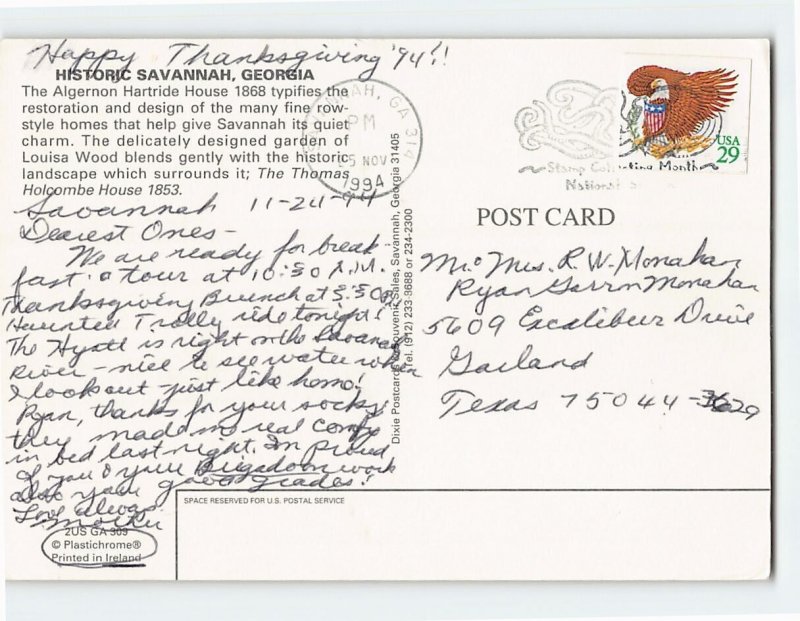 Happy Thanksgiving '94!!
HISTORIC SAVANNAH, GEORGIA
The Algernon Hartride House 1868 typifies the
restoration and design of the many fine row-
style homes that help give Savannah its quiet
charm. The delicately designed garden of
Louisa Wood blends gently with the historic
landscape which surrounds it; The Thomas
Holcombe House 1853.
Savannah 11-24-94
Dearest Ones-
We are ready for break-
fast & a tour at 10:30 A.M.
Thanksgiving Brunch at 3:30
Haunted Trolly ride tonight!
The Hyatt is right on the Savannah
River - nice to see water when
I look out - just like home!
Ryan, thanks for your socks;
they made me real comfy
in bed last night. I'm proud
of you & your Brigadoon work
also your good grades!
Love always
2US GA 309
© Plastichrome®
Printed in Ireland
Dixie Postcards & Souvenir Sales, Savannah, Georgia 31405
Tel. (912) 233-8688 or 234-2300
SAVANNAH, GA 314
PM
25 NOV
1994
Stamp Collecting Month
National
USA
29
POST CARD
Mr. & Mrs. R. W. Monahan
Ryan Monahan
5609 Excalibur Drive
Garland
Texas 75044-3629
SPACE RESERVED FOR U.S. POSTAL SERVICE